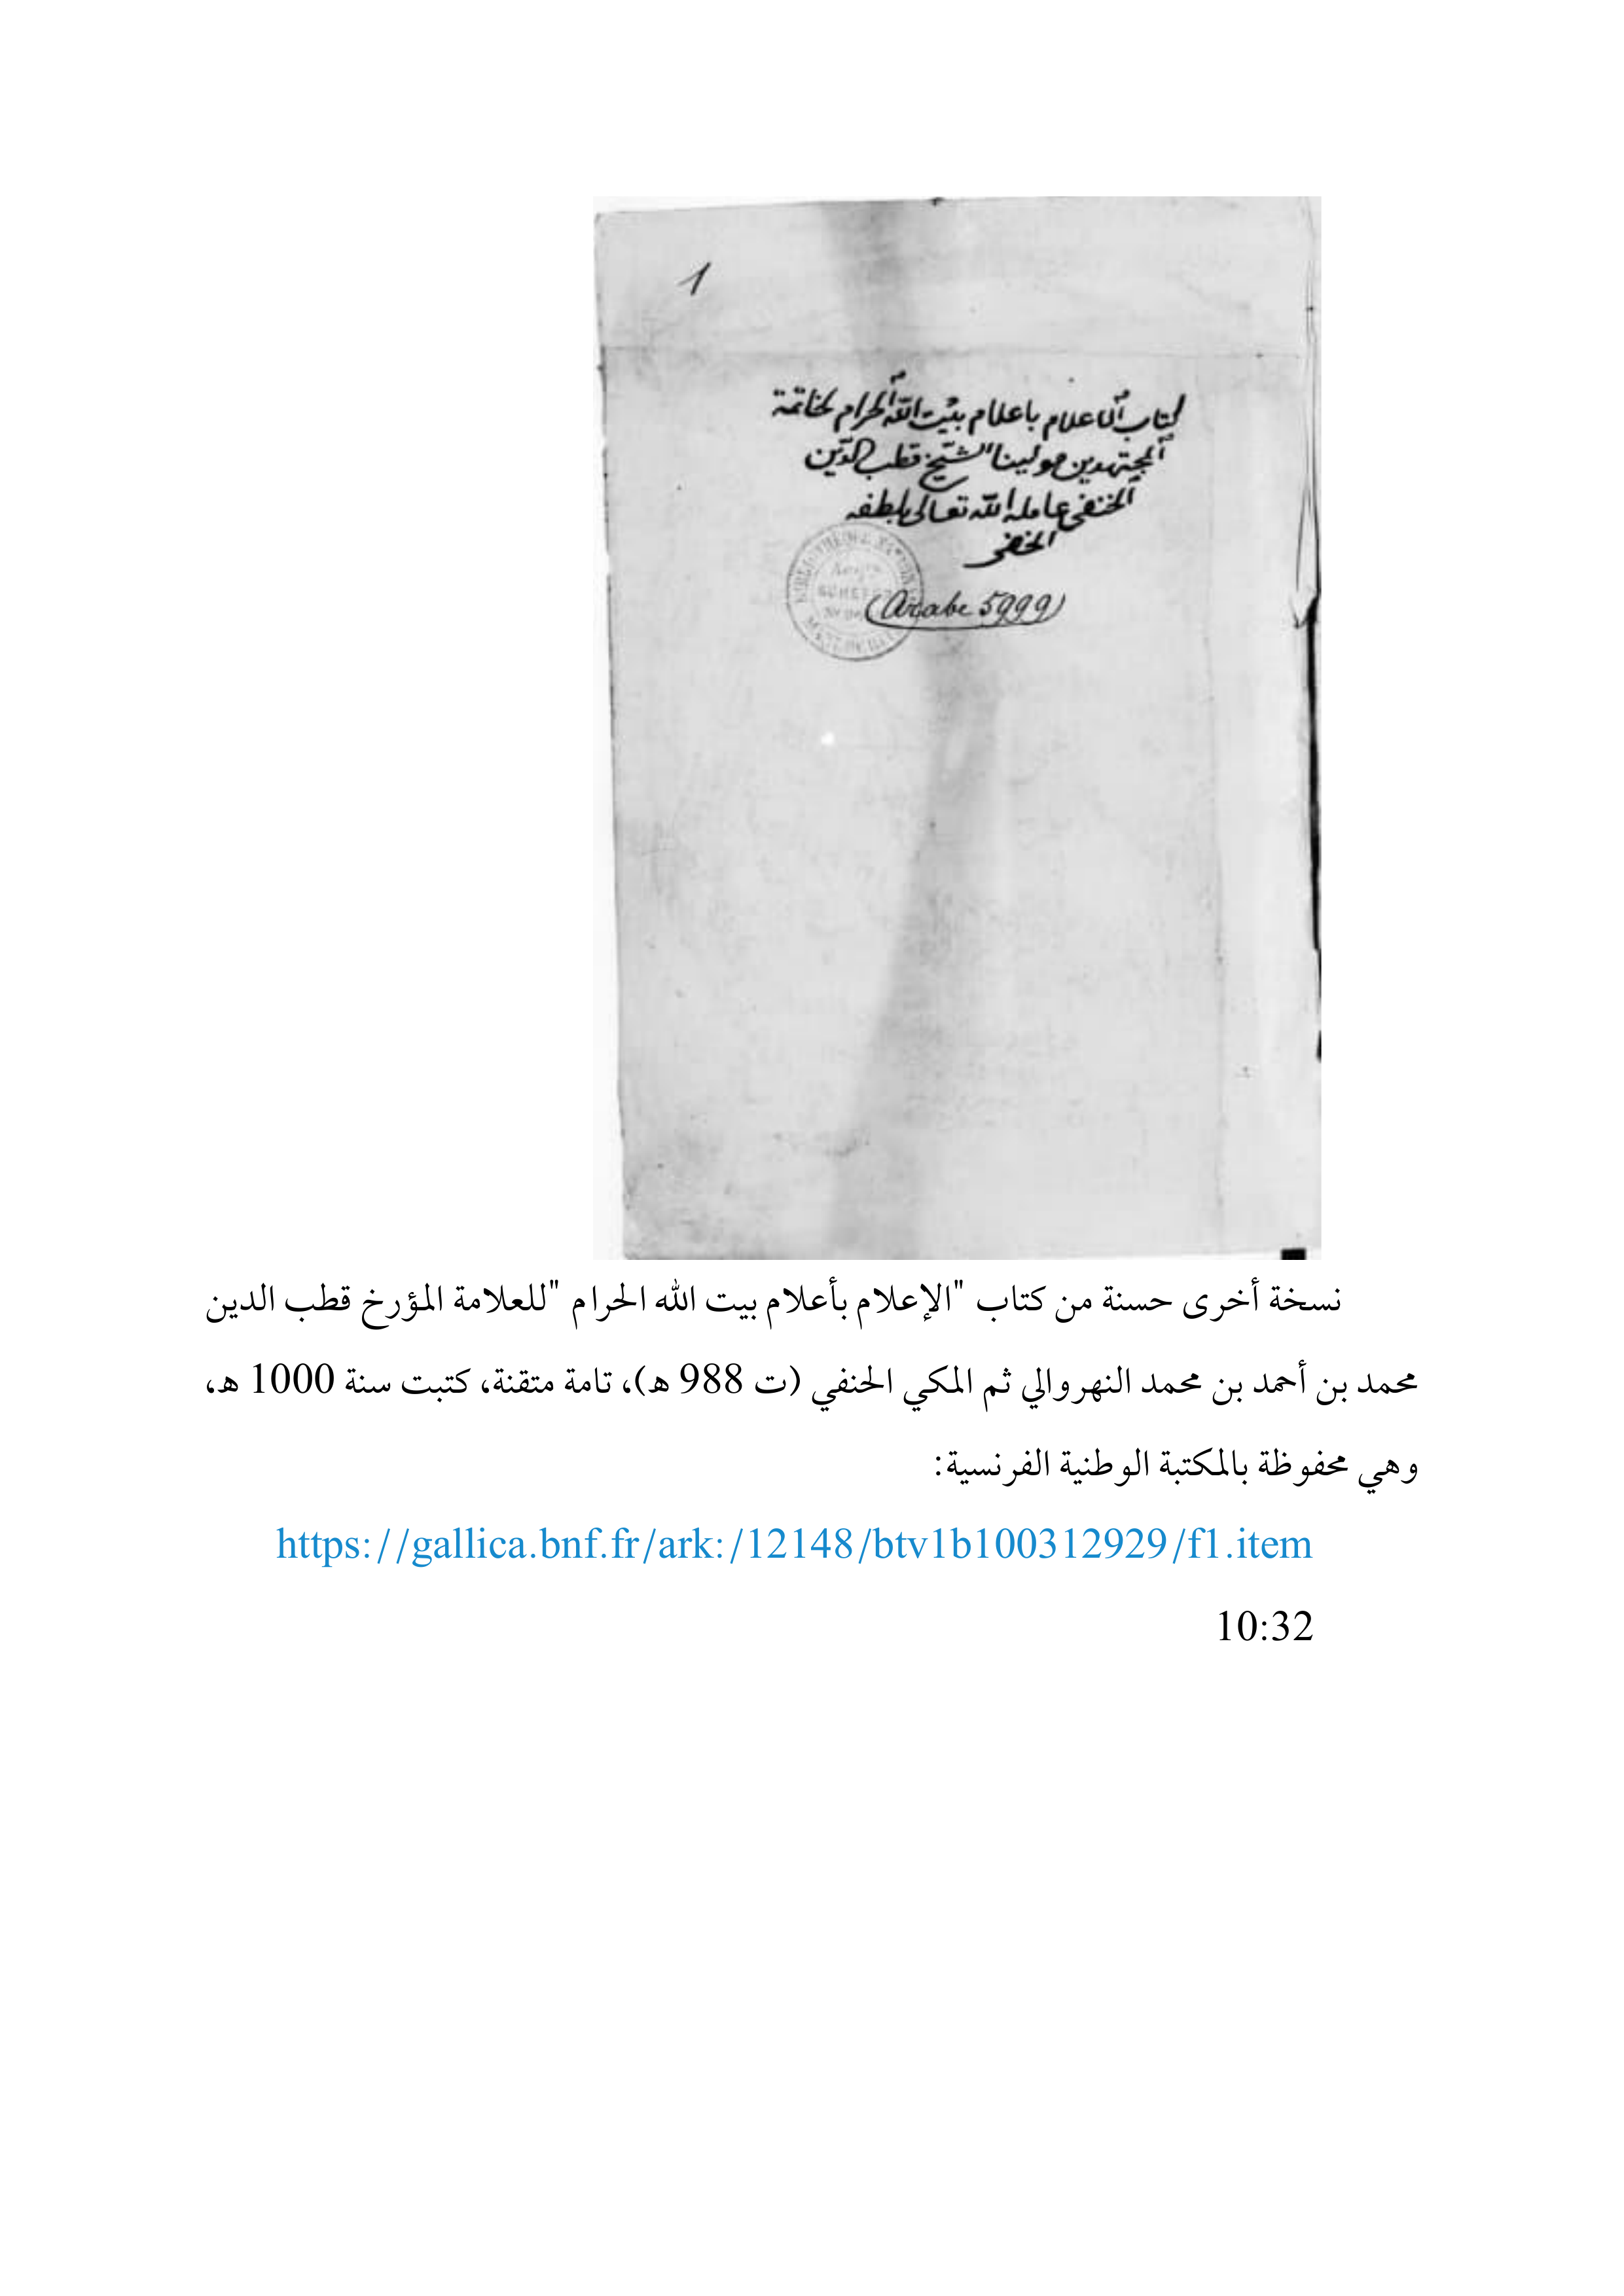 1
كتاب الاعلام باعلام بيت الله الحرام لخاتمة
المجتهدين مولينا الشيخ قطب الدين
الحنفي عامله الله تعالى بلطفه
الخفى
BIBLIOTHÈQUE NATION
(Arabe 5999)
نسخة أخرى حسنة من كتاب "الإعلام بأعلام بيت الله الحرام "للعلامة المؤرخ قطب الدين
محمد بن أحمد بن محمد النهروالي ثم المكي الحنفي (ت 988 هـ)، تامة متقنة، كتبت سنة 1000 هـ،
وهي محفوظة بالمكتبة الوطنية الفرنسية:
https://gallica.bnf.fr/ark:/12148/btv1b100312929/f1.item
10:32